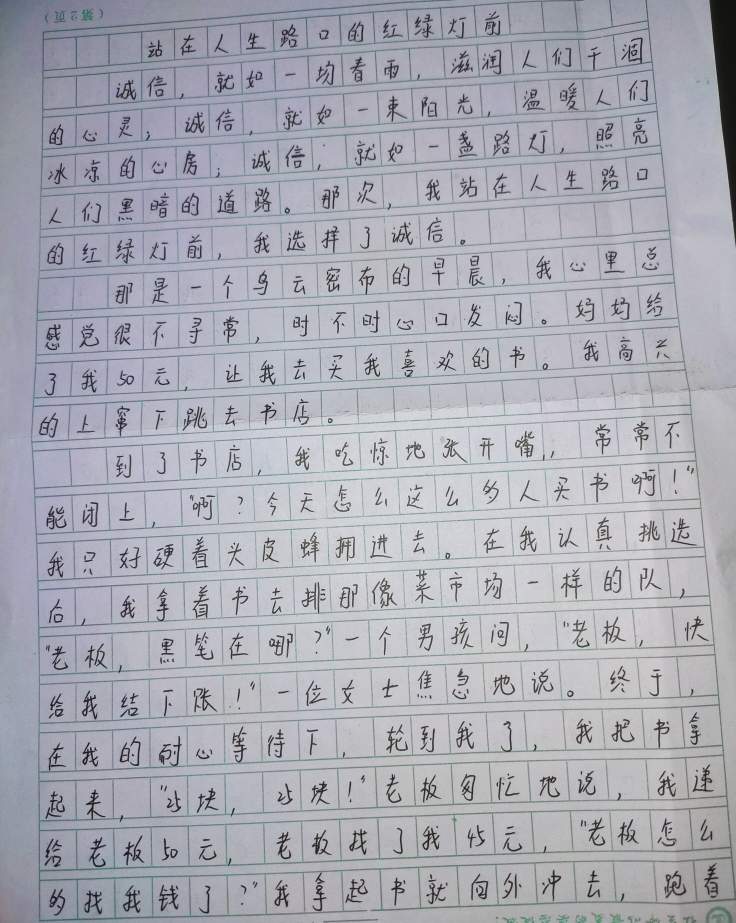 站在人生路口的红绿灯前
诚信，就如一场春雨，滋润人们干涸
的心灵；诚信，就如一束阳光，温暖人们
冰凉的心房；诚信，就如一盏路灯，照亮
人们黑暗的道路。那次，我站在人生路口
的红绿灯前，我选择了诚信。
那是一个乌云密布的早晨，我心里总
感觉很不寻常，时不时心口发闷。妈妈给
了我50元，让我去买我喜欢的书。我高兴
的上窜下跳去书店。
到了书店，我吃惊地张开嘴，常常不
能闭上，"啊？今天怎么这么多人买书啊！"
我只好硬着头皮蜂拥进去。在我认真挑选
后，我拿着书去排那像菜市场一样的队，
"老板，黑笔在哪？"一个男孩问，"老板，快
给我结下账！"一位女士焦急地说。终于，
在我的耐心等待下，轮到我了，我把书拿
起来，"25块，25块！"老板匆忙地说，我递
给老板50元，老板找了我45元，"老板怎么
多找我钱了？"我拿起书就向外冲去，跑着